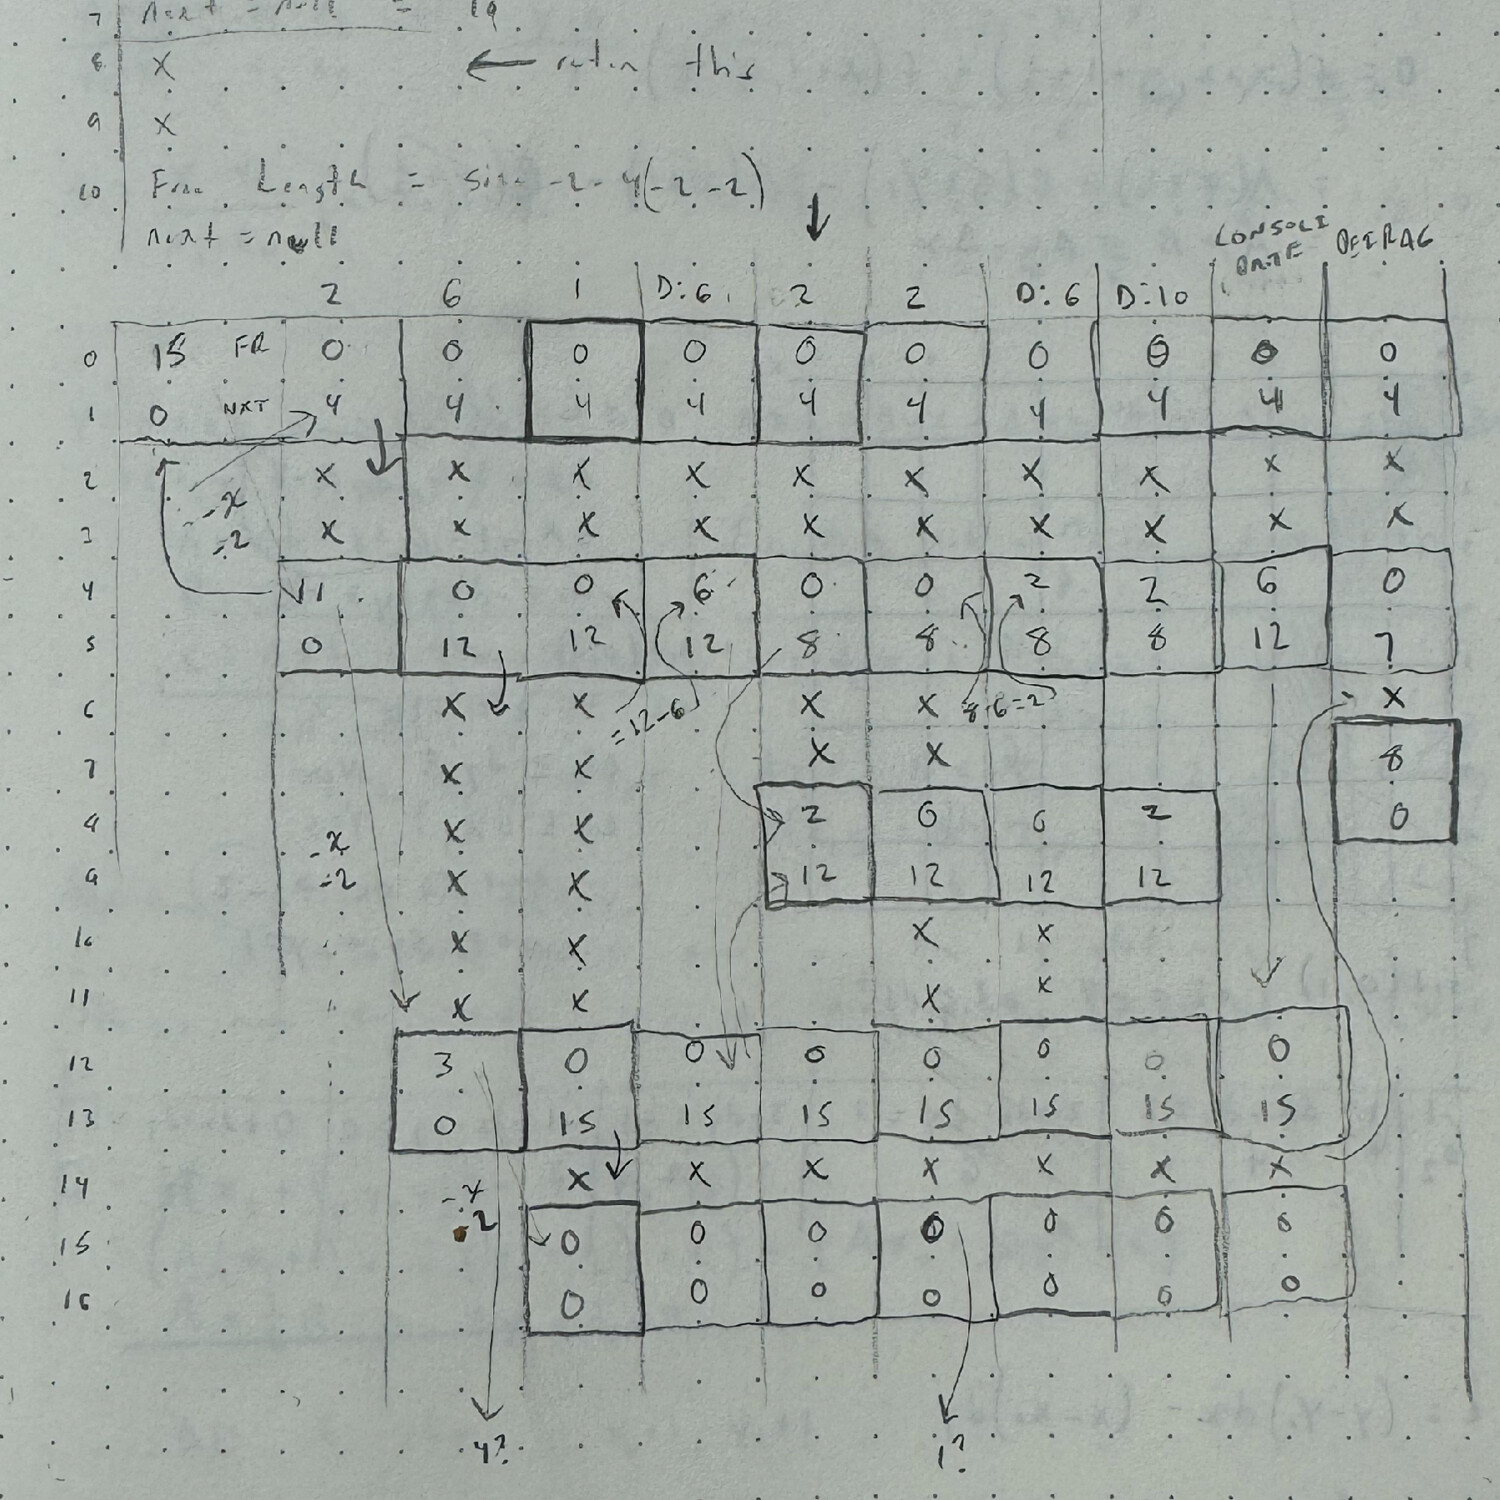 7 next = null = 19
8 X ← return this
9 X
10 Free Length = size -2 - 4(-2-2)
next = null
CONSOLI DATE DEFRAG
2 6 1 D:6 2 2 D:6 D:10
0 15 FR 0 0 0 0 0 0 0 0 0 0
1 0 NXT 4 4 4 4 4 4 4 4 4 4
2 X X X X X X X X X X
-x
3 X X X X X X X X X X
-2
4 11 0 0 6 0 0 2 2 6 0
5 0 12 12 12 8 8 8 8 12 7
6 X X =12-6 X X 8-6=2 X
7 X X X X 8
9 X X 2 0 0 2 0
-x
9 X X 12 12 12 12
-2
10 X X X X
11 X X X X
12 3 0 0 0 0 0 0 0
13 0 15 15 15 15 15 15 15
14 X X X X X X X
-x
-2
15 0 0 0 0 0 0 0
16 0 0 0 0 0 0 0
4? 1?